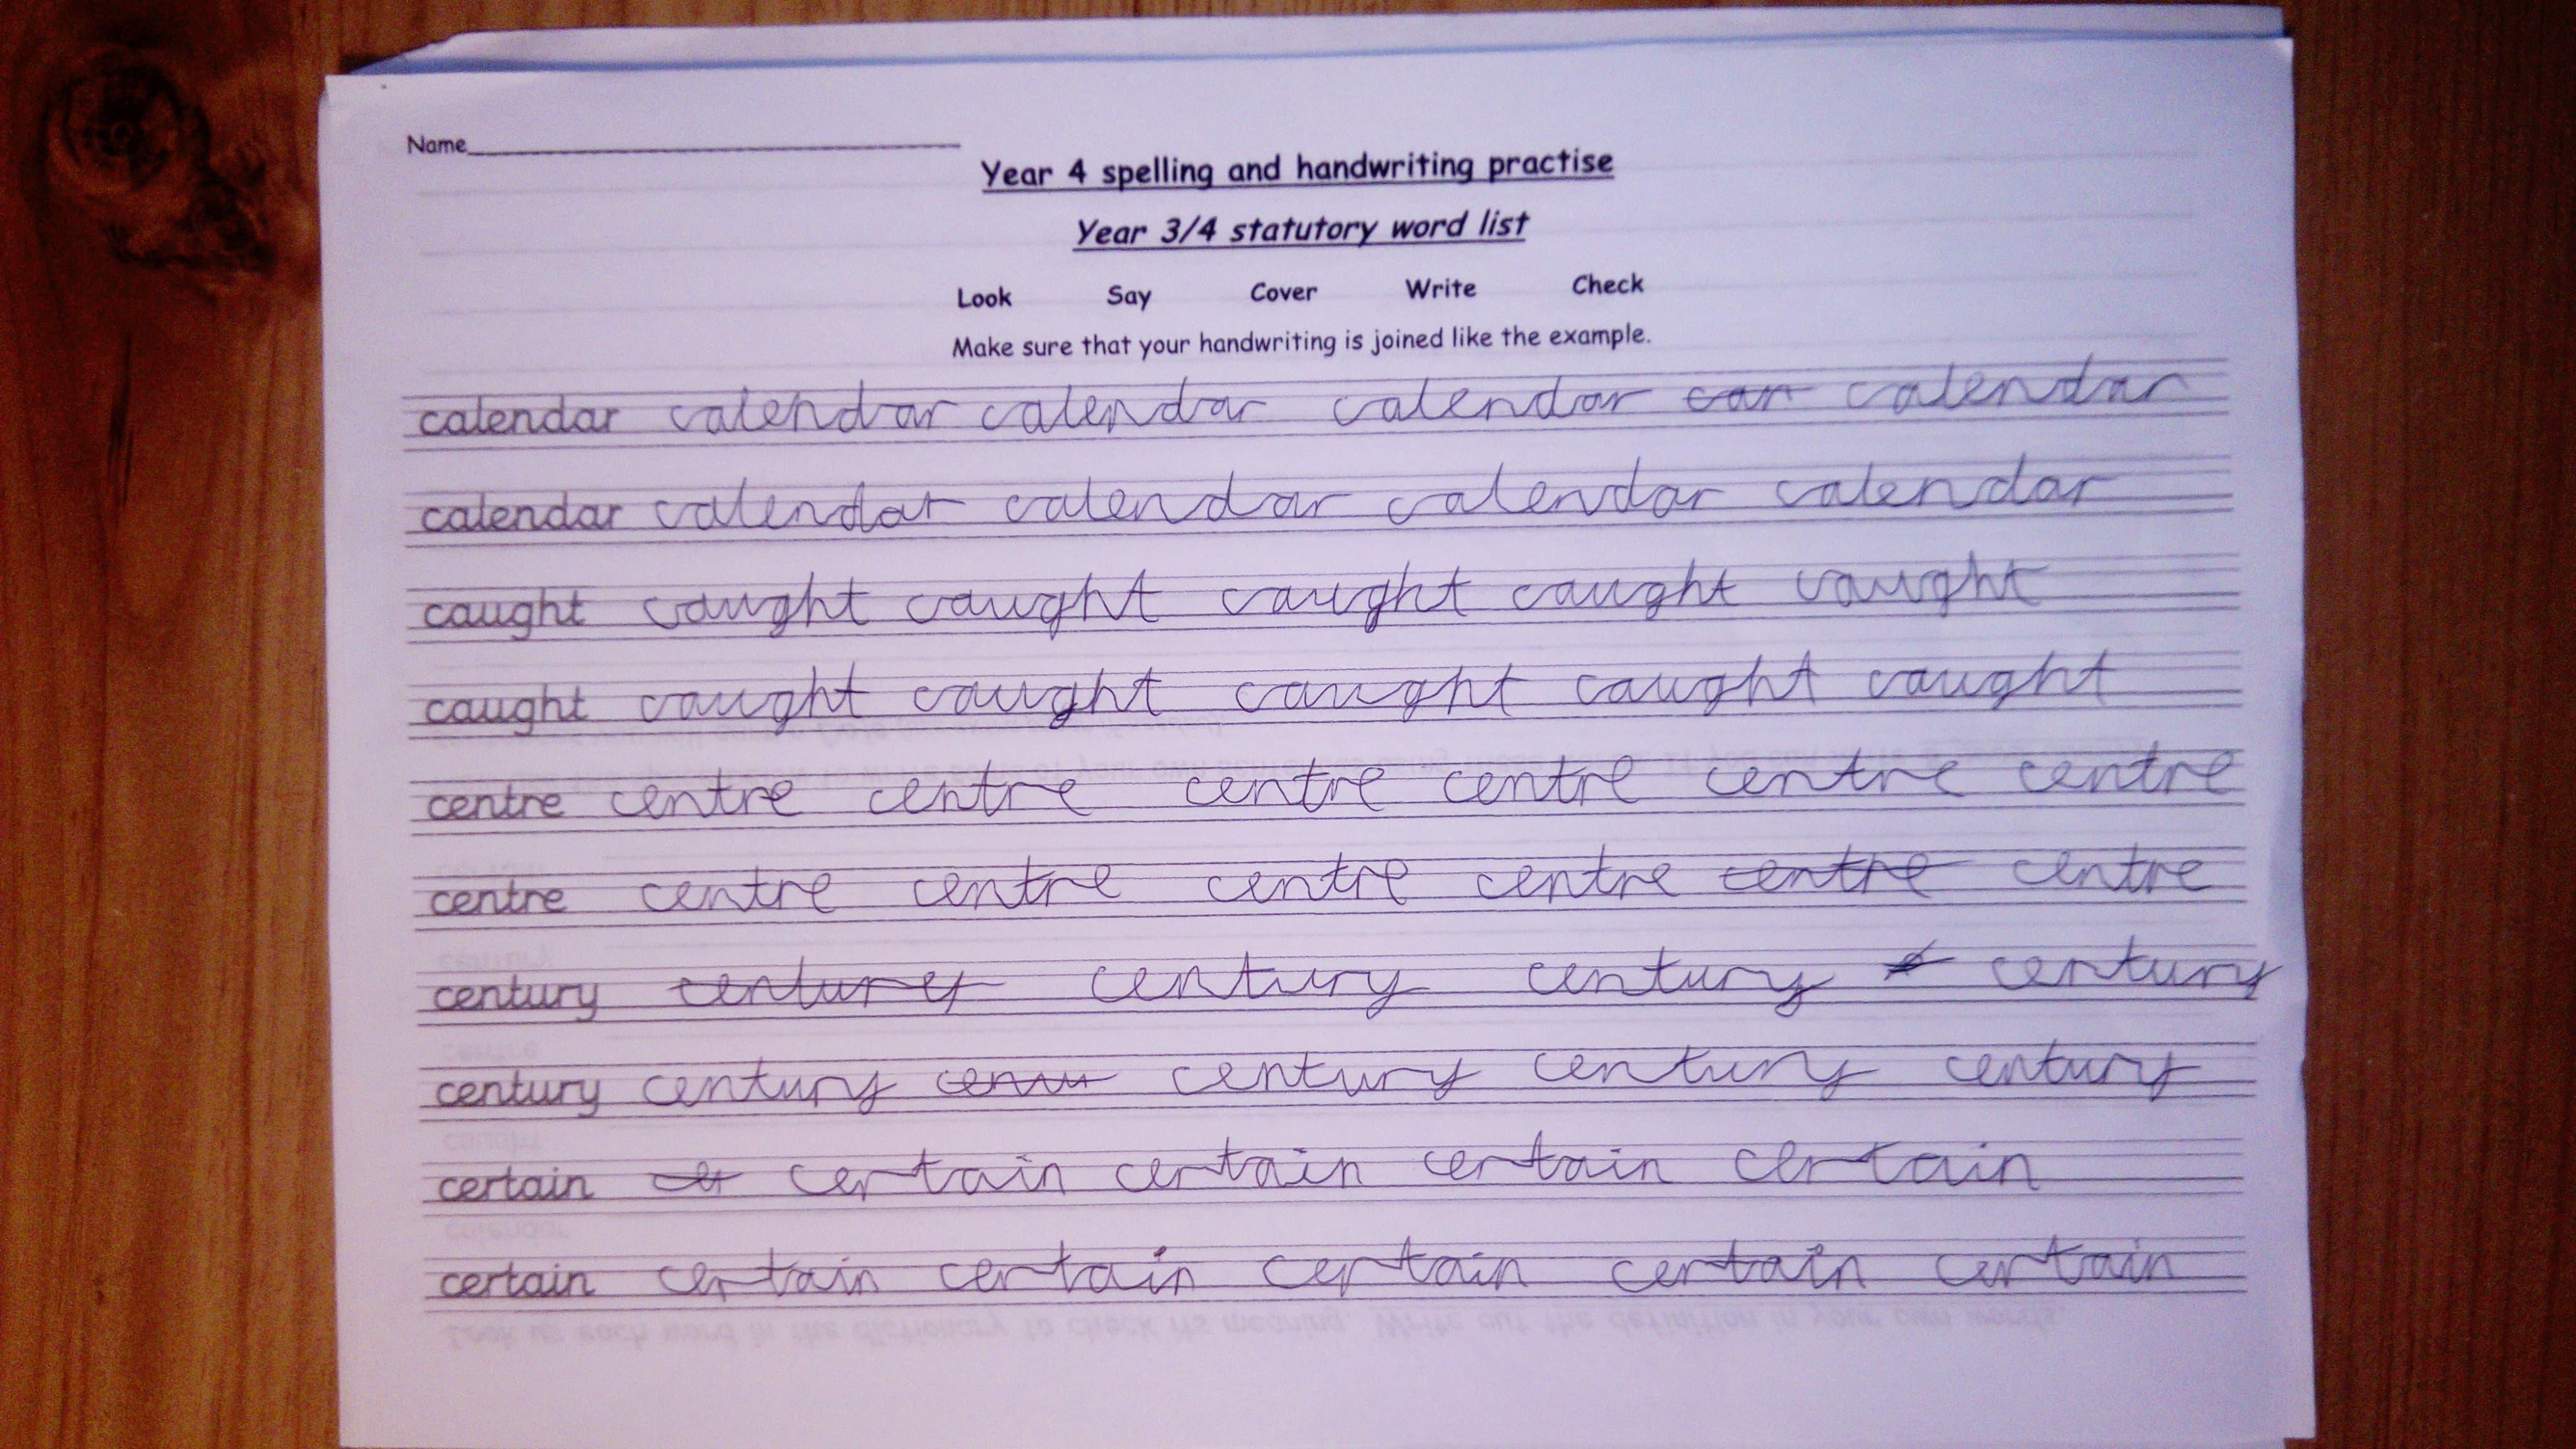 Name
Year 4 spelling and handwriting practise
Year 3/4 statutory word list
Look Say Cover Write Check
Make sure that your handwriting is joined like the example.
calendar calendar calendar calendar can calendar
calendar calendar calendar calendar calendar
caught caught caught caught caught caught
caught caught caught caught caught caught
centre centre centre centre centre centre centre
centre centre centre centre centre centre centre
century century century century
century century century century century
certain certain certain certain certain
certain certain certain certain certain certain
Look up each word in the dictionary to check its meaning. Write out the definition in your own words.